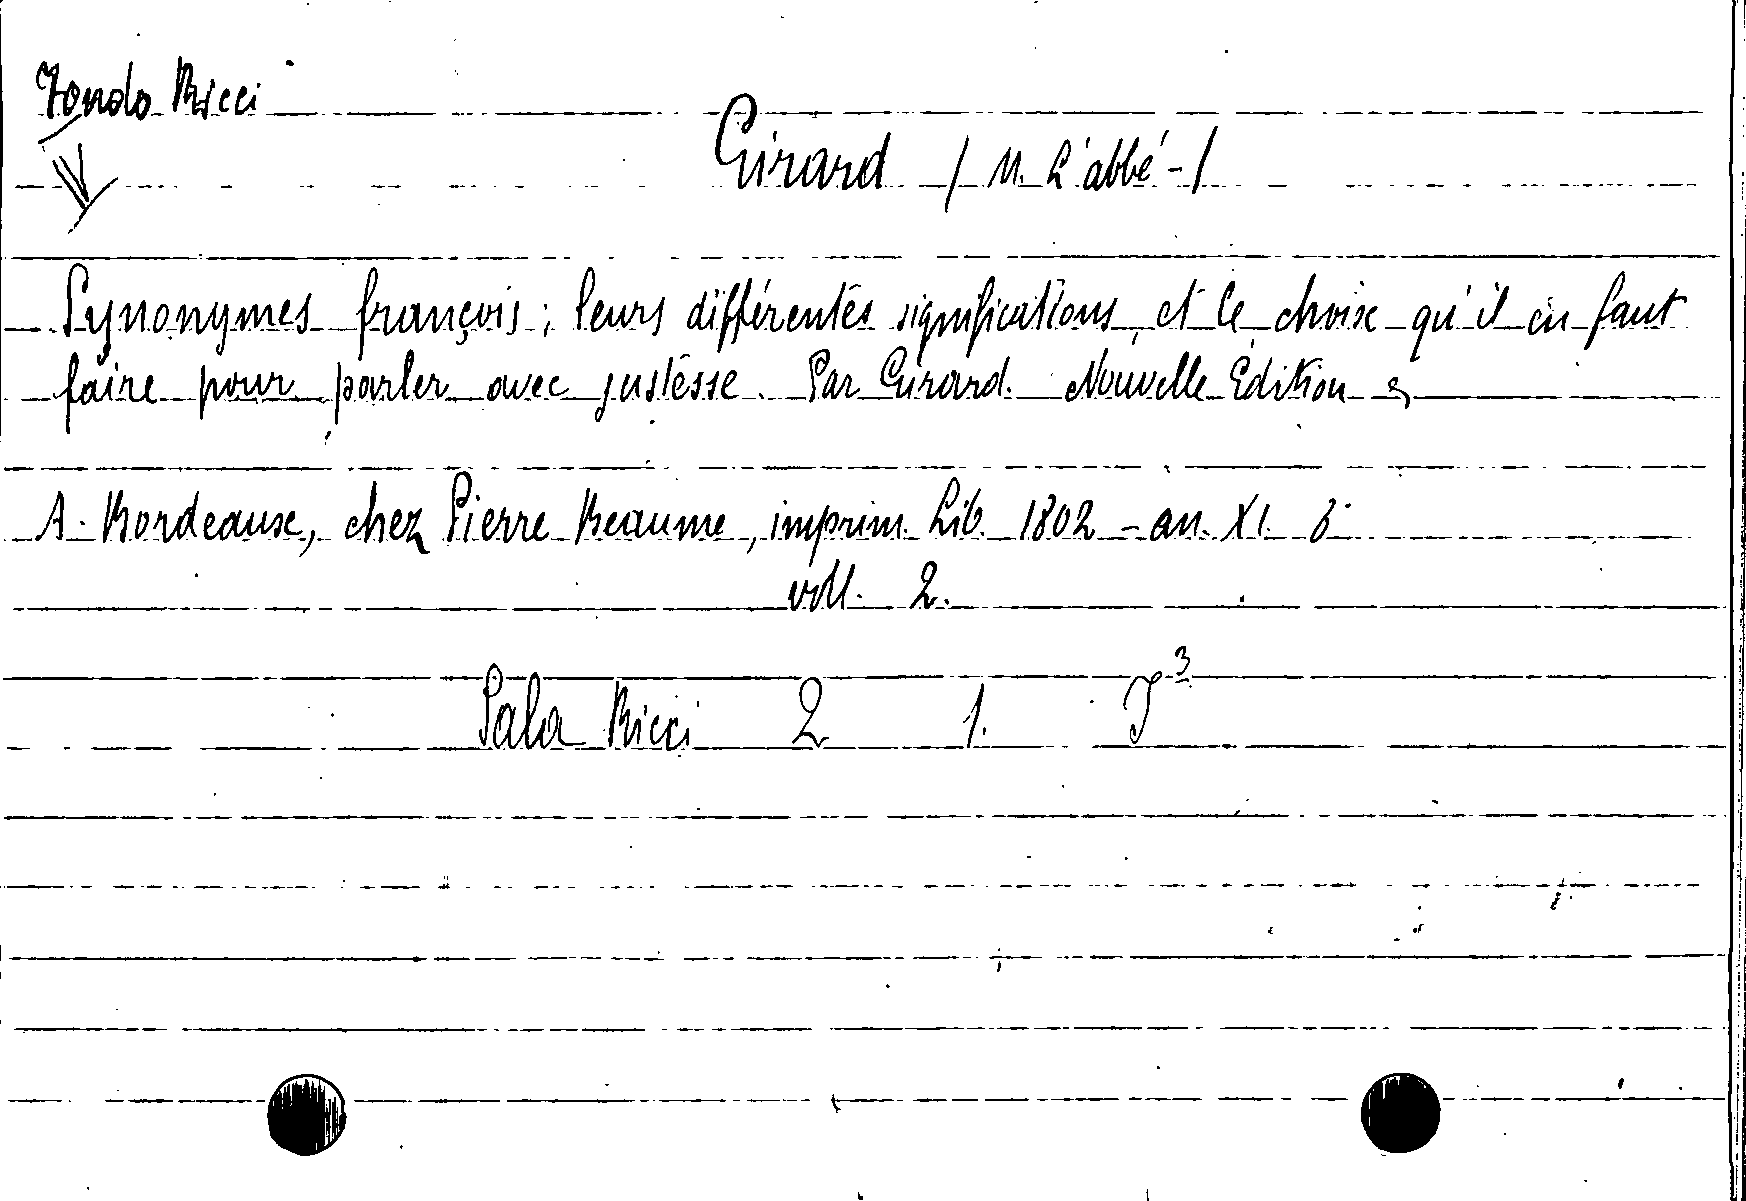 Fondo Ricci
Girard / M. L'abbé - /
Synonymes françois; leurs différentes significations, et le choix qu'il en faut
faire pour parler avec justesse. Par Girard. Nouvelle Edition
A. Bordeaux, chez Pierre Beaume, imprim. Lib. 1802 - an. XI. 8°
voll. 2.
Sala Ricci 2 1. J³